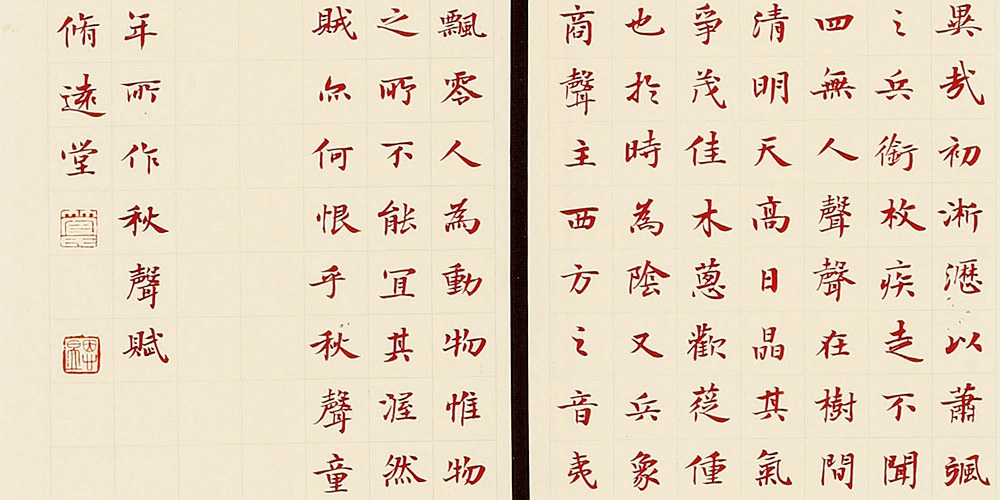 異哉初淅瀝以蕭颯
之兵銜枚疾走不聞
四無人聲聲在樹間
清明天高日晶其氣
爭茂佳木蔥蘢
商聲主西方之音夷
也於時為陰又兵象
飄零人為動物惟物
之所不能宜其渥然
賊亦何恨乎秋聲童
年所作秋聲賦
脩遠堂